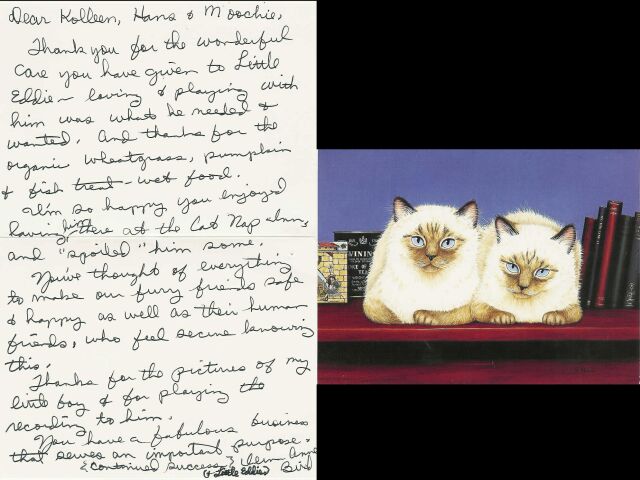 Dear Kolleen, Hans & Moochie,
Thank you for the wonderful
care you have given to Little
Eddie – loving & playing with
him was what he needed &
wanted. And thanks for the
organic wheatgrass, pumpkin
& fish treat – wet food.
I'm so happy you enjoyed
having him there at the Cat Nap Inn,
and "spoiled" him some.
You've thought of everything
to make our furry friends safe
& happy as well as their human
friends, who feel secure knowing
this.
Thanks for the pictures of my
little boy & for playing the
recording to him.
You have a fabulous business
that serves an important purpose.
& continued success Anne
(& Little Eddie) Bird
VINING